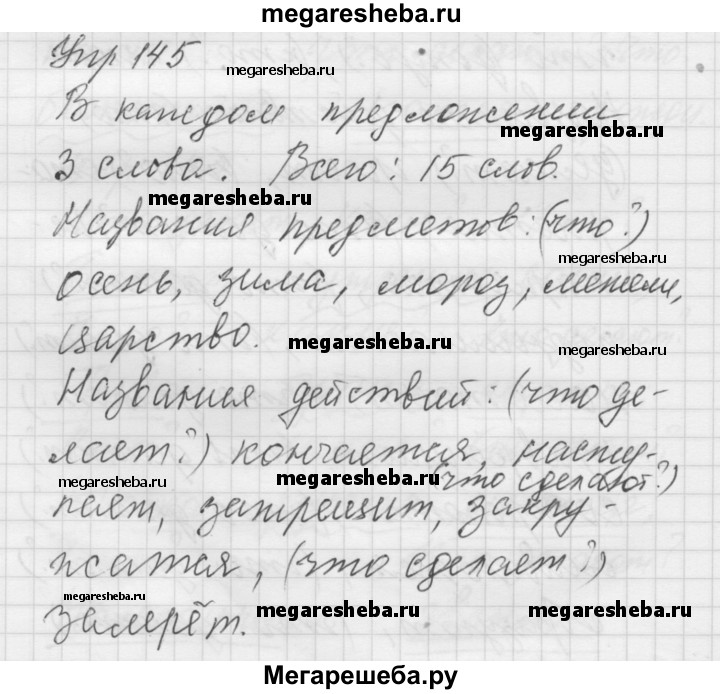 megaresheba.ru
Упр 145
megaresheba.ru
В каждом предложении
megaresheba.ru
3 слова. Всего: 15 слов.
megaresheba.ru
megaresheba.ru
Названия предметов: (что?)
megaresheba.ru
осень, зима, мороз, метели,
царство.
megaresheba.ru
megaresheba.ru
Названия действий: (что де-
лает?) кончается, насту-
megaresheba.ru
megaresheba.ru
(что сделают?)
пает, запрещит, закру-
жатся, (что сделает?)
megaresheba.ru
замрёт.
megaresheba.ru
megaresheba.ru
Мегарешеба.ру